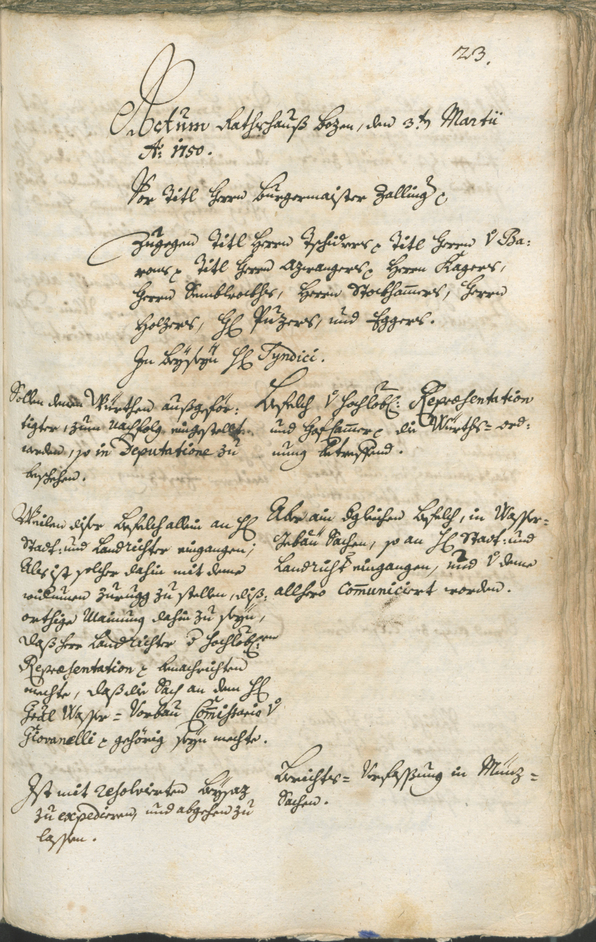 23.
Actum Rathshauß Bozen, den 3t. Martii
A: 1750.
Vor Titl Herrn Burgermaister Zalling
Zugegen Titl Herrn Tschidrers Titl Herrn V Ba:
rons Titl Herrn Azwangers Herrn Kagers,
Herrn Semblrockhs, Herrn Stockhamers, Herrn
Holzers, H: Puzers, und Eggers.
In beyseyn H: Syndici.
Sollen denen Würthen außgefer:
tigter, zum Nachfolg eingestellt
werden, so in Deputatione zu
beschehen.
Befelch V Hochlöbl: Repræsentation
und Hofcammer die Würths-ord:
nung betreffend.
Weilen diser Befelch allein an H:
Stadt- und Landrichter eingangen;
Als ist solcher dahin mit deme
widerumen zurugg zu stellen, diß:
orthige Mainung dahin zu seyn,
daß Herr Landrichter d Hochlöbl:en
Repræsentation benachrichten
mechte, daß die Sach an dem H:
Gräl Wasser-Vorbau Comissario V
Giovanelli gehörig seyn mechte.
Aber ain dgleichen Befelch, in Wasser-
Gebäu Sachen, so an H: Stadt- und
Landricht eingangen, und V deme
allhero comuniciert worden.
Ist mit resolvierten Beysaz
zu expedieren, und abgehen zu
lassen.
Berichts-Verfassung in Münz-
Sachen.